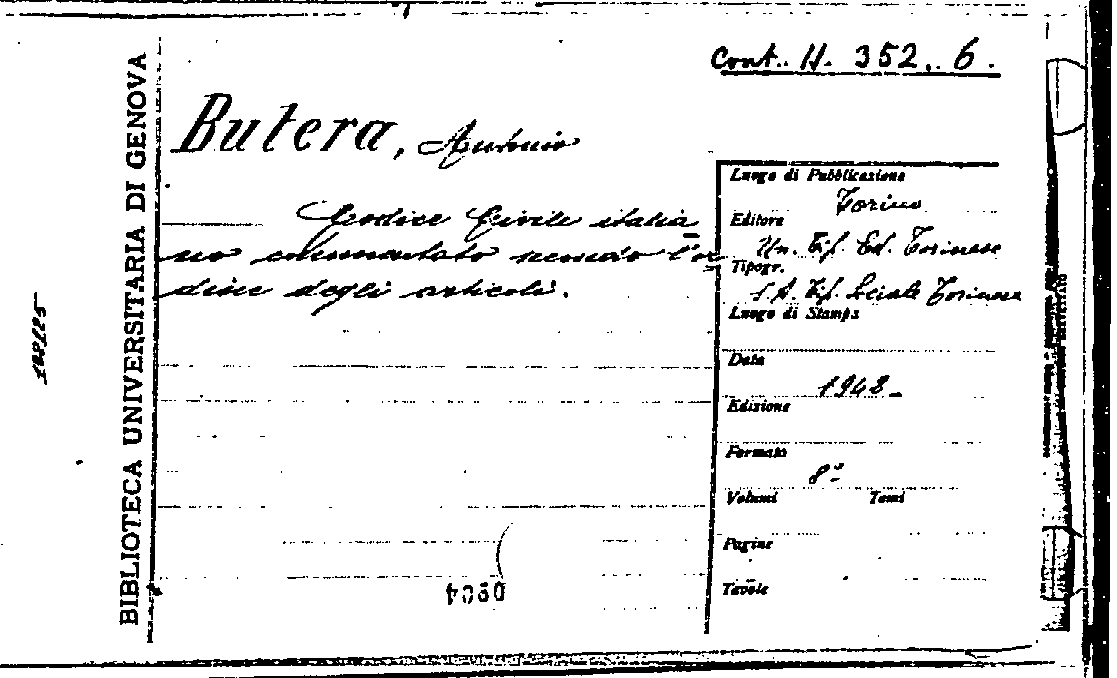 Cont. H. 352. 6.
BIBLIOTECA UNIVERSITARIA DI GENOVA
Butera, Antonio
Codice Civile italia
no commentato secondo l'or
dine degli articoli.
Luogo di Pubblicazione
Torino
Editore
Un. Tip. Ed. Torinese
Tipogr.
S.A. Tip. Sociale Torinese
Luogo di Stampa
Data
1948
Edizione
Formato
8º
Volumi Tomi
Pagine
Tavole